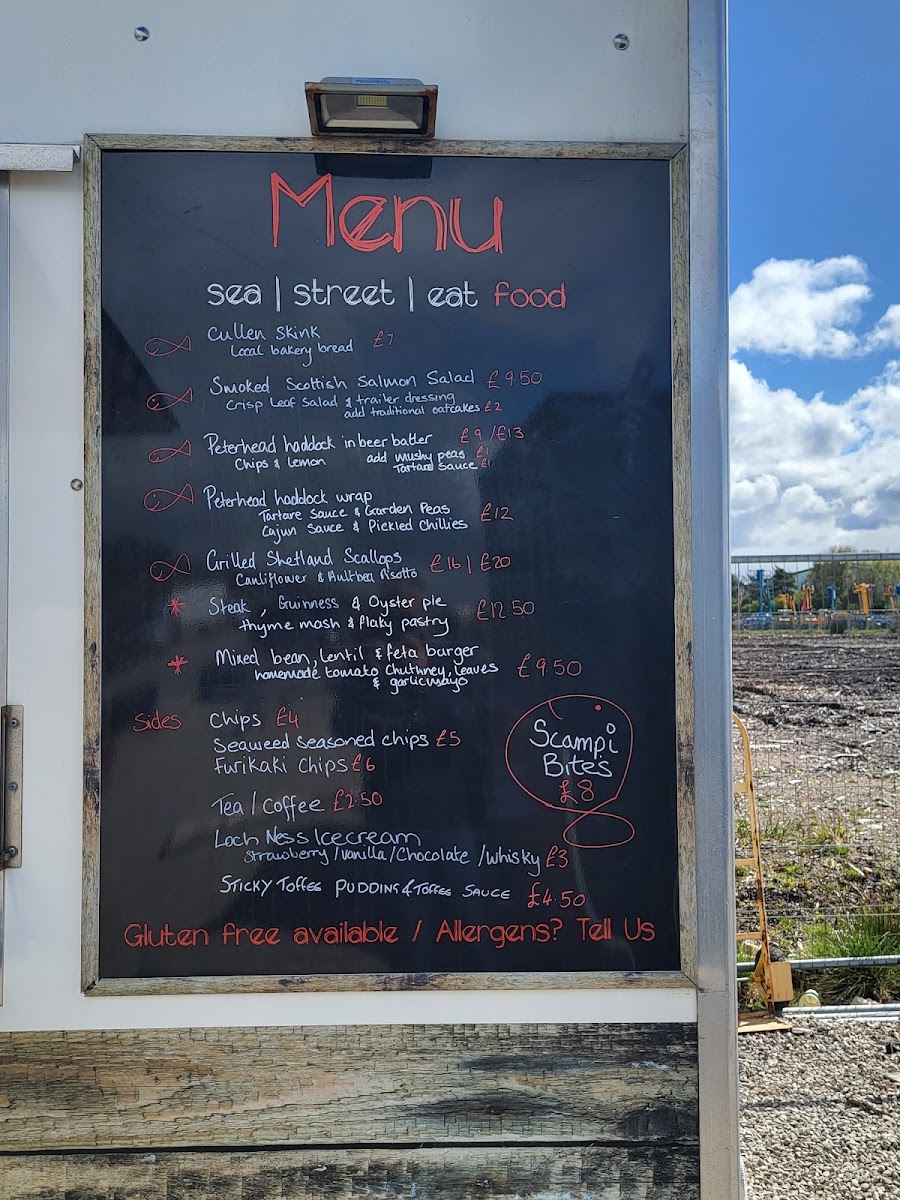 Menu
sea | street | eat food
Cullen Skink £7
Local bakery bread
Smoked Scottish Salmon Salad £9.50
Crisp Leaf Salad & trailer dressing
add traditional oatcakes £2
Peterhead haddock in beer batter £9/£13
Chips & Lemon add mushy peas £1
Tartare Sauce £1
Peterhead haddock wrap
Tartare Sauce & Garden Peas £12
Cajun Sauce & Pickled Chillies
Grilled Shetland Scallops £16 | £20
Cauliflower & Aultbea Risotto
Steak, Guinness & Oyster pie £12.50
thyme mash & flaky pastry
Mixed bean, lentil & feta burger
homemade tomato Chuthney, leaves £9.50
& garlic mayo
Sides Chips £4
Seaweed Seasoned chips £5
Furikaki Chips £6
Scampi
Bites
£8
Tea / Coffee £2.50
Loch Ness Icecream
Strawberry / Vanilla / Chocolate / Whisky £3
Sticky Toffee Pudding & Toffee Sauce £4.50
Gluten free available / Allergens? Tell Us